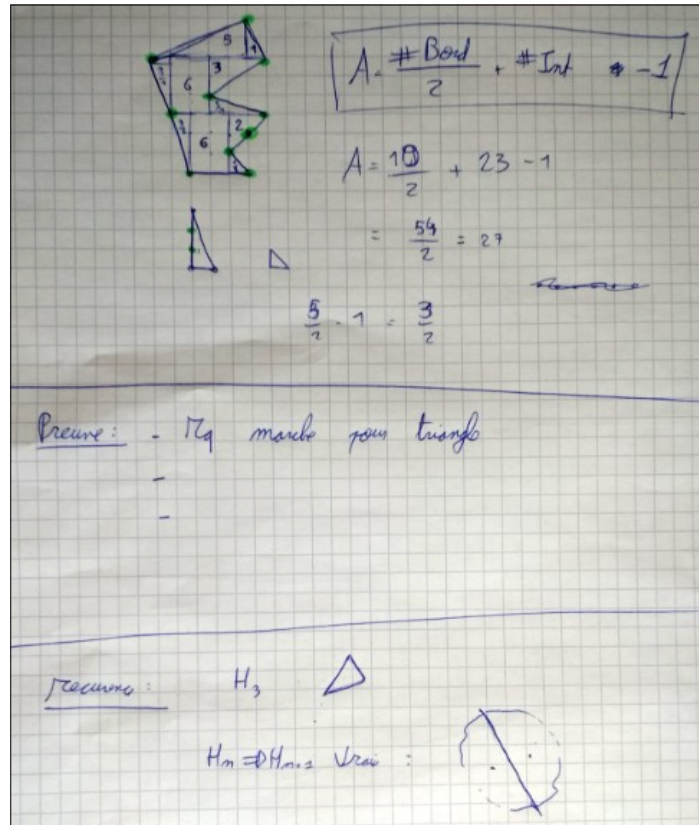 5 1
3/2 6 3
3/2 6 1/2 2
1
A = #Bord/2 + #Int - 1
A = 10/2 + 23 - 1
= 54/2 = 27
5/2 - 1 = 3/2
Preuve : - Mq marche pour triangle
-
-
H₃
Hn => Hn+1 Vrai :